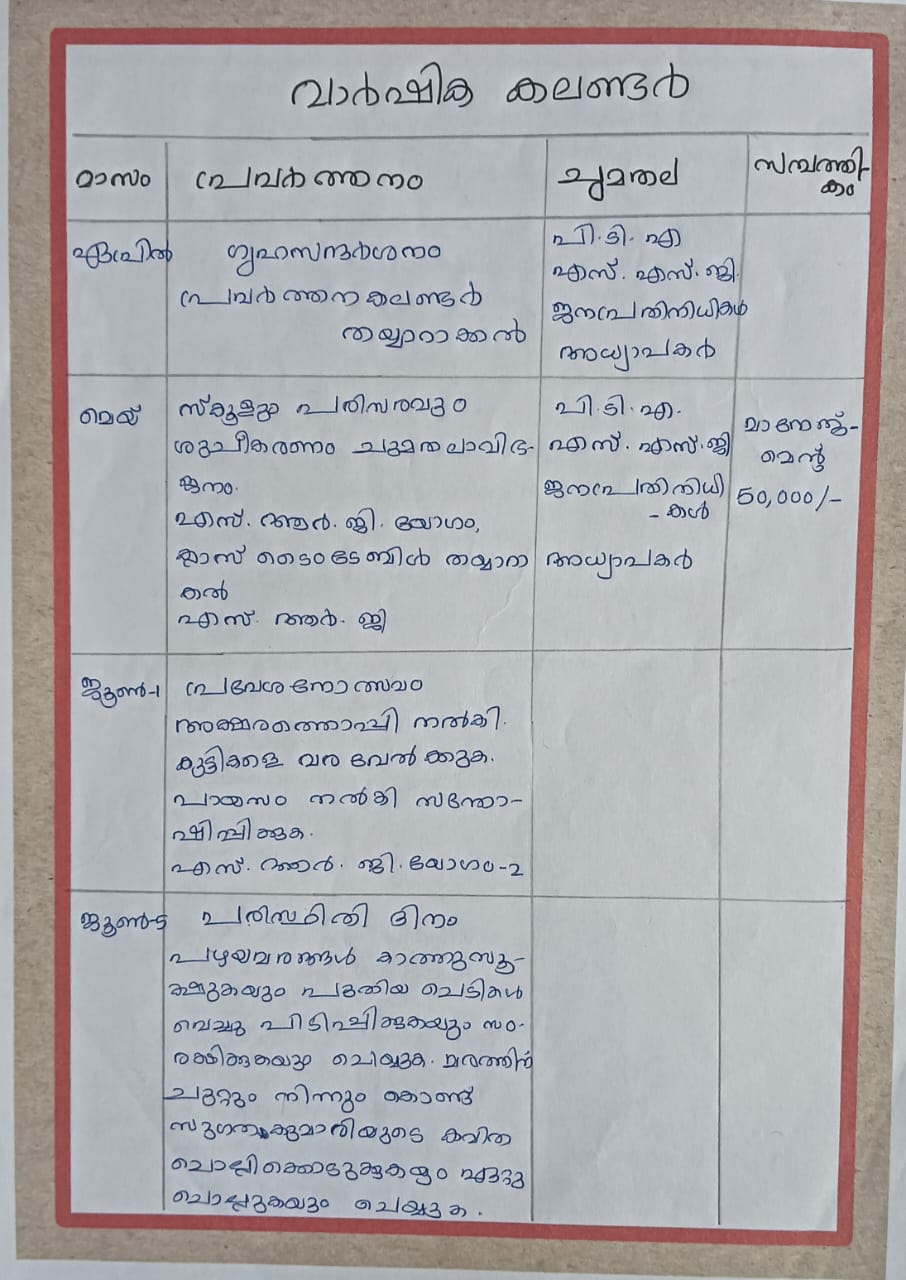 വാർഷിക കലണ്ടർ
മാസം
പ്രവർത്തനം
ചുമതല
സമ്പത്തി-
കം
ഏപ്രിൽ
ഗൃഹസന്ദർശനം
പ്രവർത്തന കലണ്ടർ
തയ്യാറാക്കൽ
പി.ടി.എ
എസ്.എസ്.ജി.
ജനപ്രതിനിധികൾ
അധ്യാപകർ
മെയ്
സ്കൂളും പരിസരവും
ശുചീകരണം ചുമതലാവിഭ-
ജനം.
എസ്.ആർ.ജി.യോഗം,
ക്ലാസ് ടൈംടേബിൾ തയ്യാറാ
ക്കൽ
എസ്.ആർ.ജി
പി.ടി.എ.
എസ്.എസ്.ജി
ജനപ്രതിനിധി
- കൾ
അധ്യാപകർ
മാനേജ്-
മെന്റ്
50,000/-
ജൂൺ-1
പ്രവേശനോത്സവം
അക്ഷരത്തൊപ്പി നൽകി.
കുട്ടികളെ വരവേൽക്കുക.
പായസം നൽകി സന്തോ-
ഷിപ്പിക്കുക.
എസ്.ആർ.ജി.യോഗം-2
ജൂൺ-5
പരിസ്ഥിതി ദിനം
പഴയമരങ്ങൾ കാത്തുസൂ-
ക്ഷുകയും പുതിയ ചെടികൾ
വെച്ചു പിടിപ്പിക്കുകയും സം-
രക്ഷിക്കുകയും ചെയ്യുക. മരത്തിന്
ചുറ്റും നിന്നും കൊണ്ട്
സുഗതകുമാരിയുടെ കവിത
ചൊല്ലിക്കൊടുക്കുകയും ഏറ്റു
ചൊല്ലുകയും ചെയ്യുക.